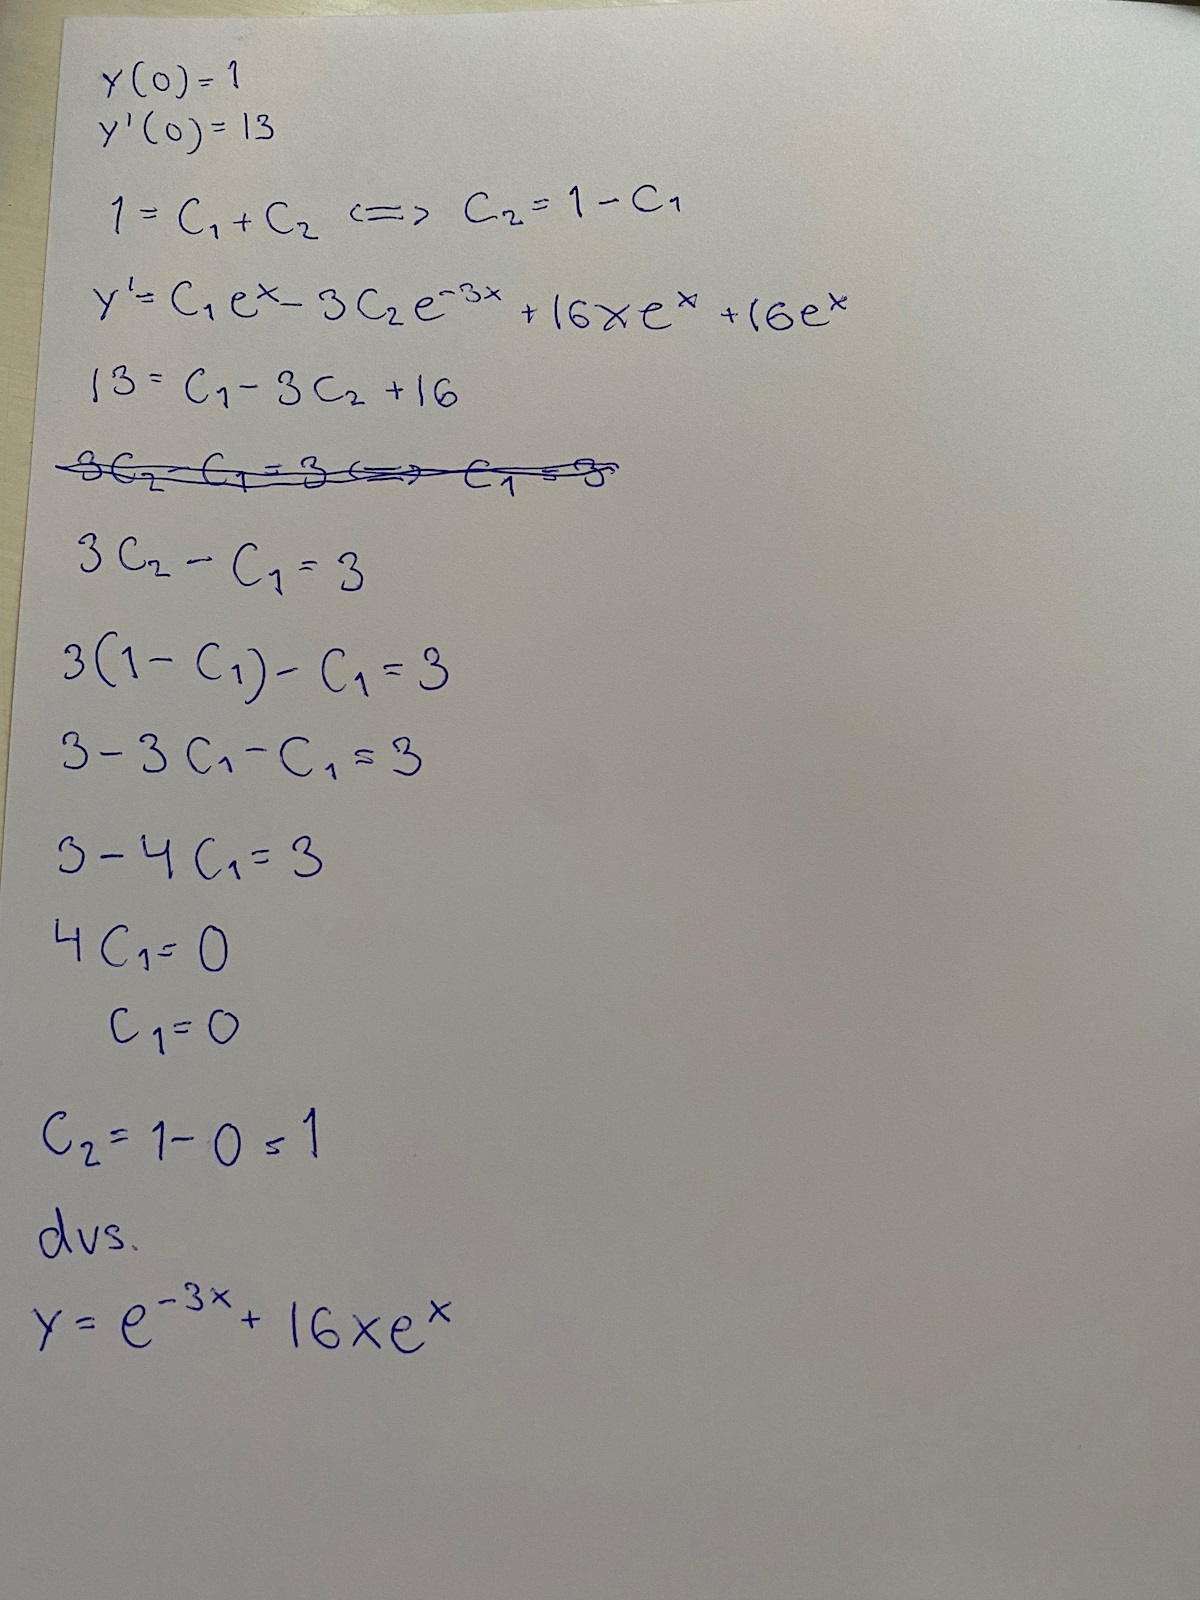 y(0)=1
y'(0)=13
1=C₁+C₂ <=> C₂=1-C₁
y'=C₁eˣ-3C₂e⁻³ˣ+16xeˣ+16eˣ
13=C₁-3C₂+16
3C₂-C₁=3 <=> C₁=3
3C₂-C₁=3
3(1-C₁)-C₁=3
3-3C₁-C₁=3
3-4C₁=3
4C₁=0
C₁=0
C₂=1-0=1
dvs.
y=e⁻³ˣ+16xeˣ